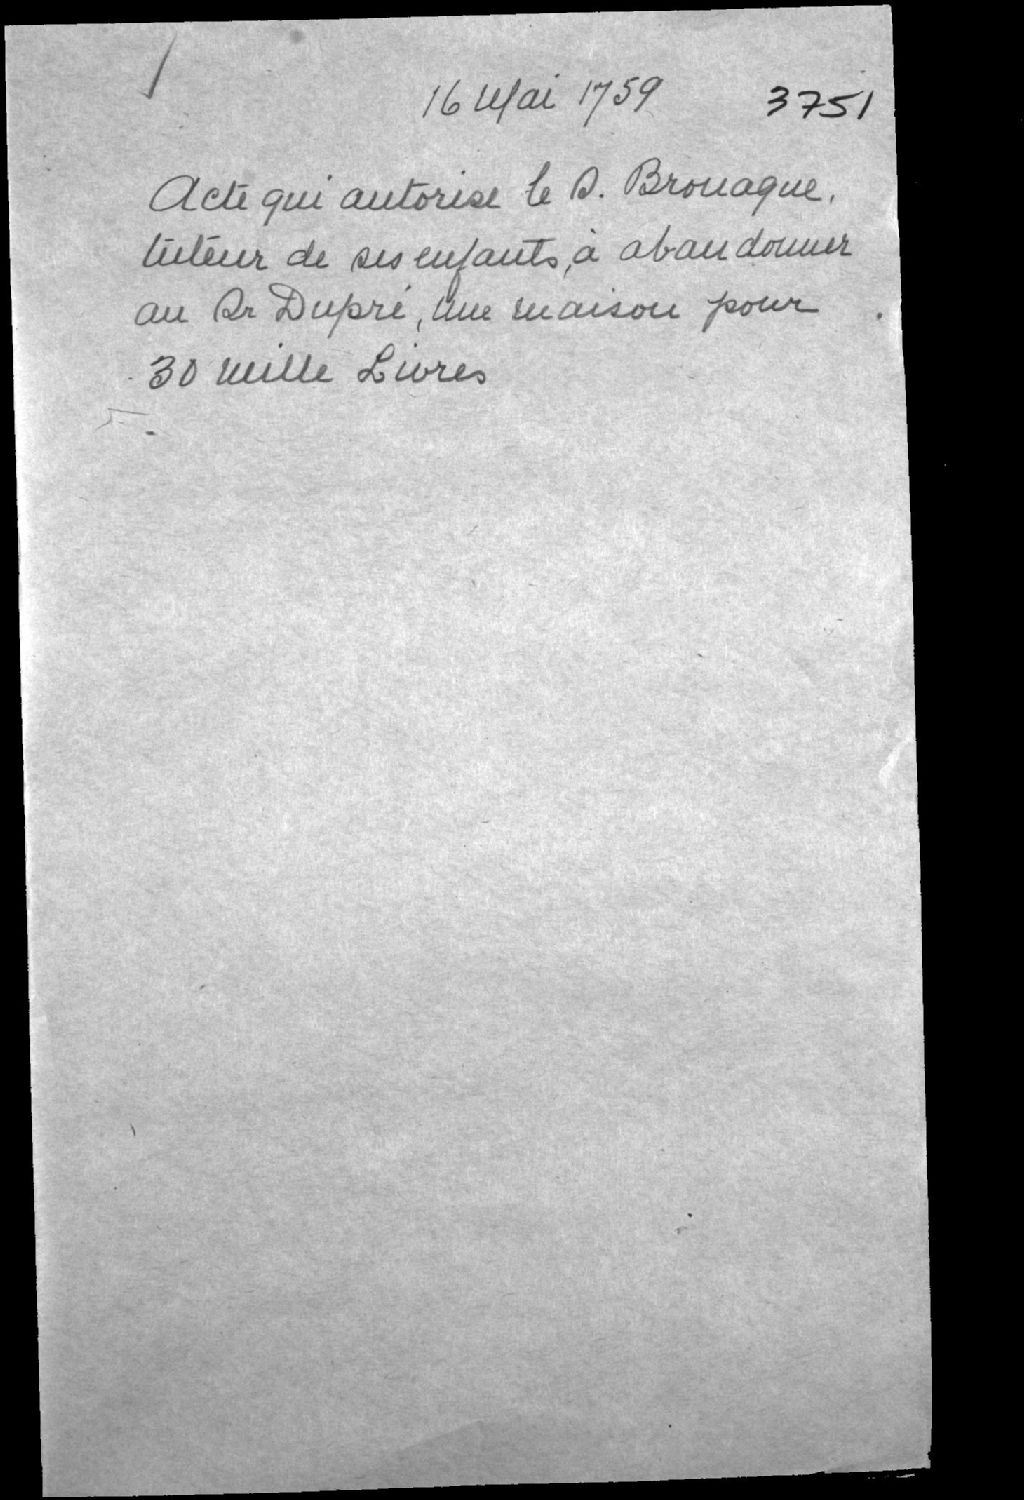 16 Mai 1759 3751
Acte qui autorise le S. Brouague,
tuteur de ses enfants, à abandonner
au Sr Dupré, une maison pour
30 mille Livres